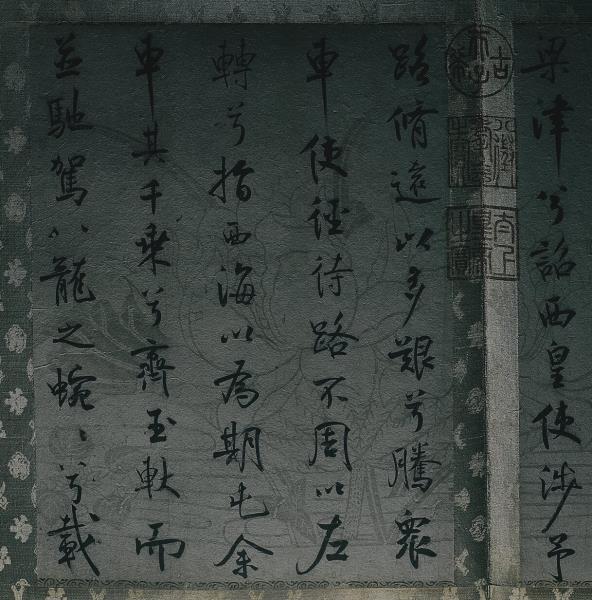 梁津兮詔西皇使涉予
路脩遠以多艱兮騰眾
車使徑待路不周以左
轉兮指西海以為期屯余
車其千乘兮齊玉軑而
並馳駕八龍之蜿〻兮載